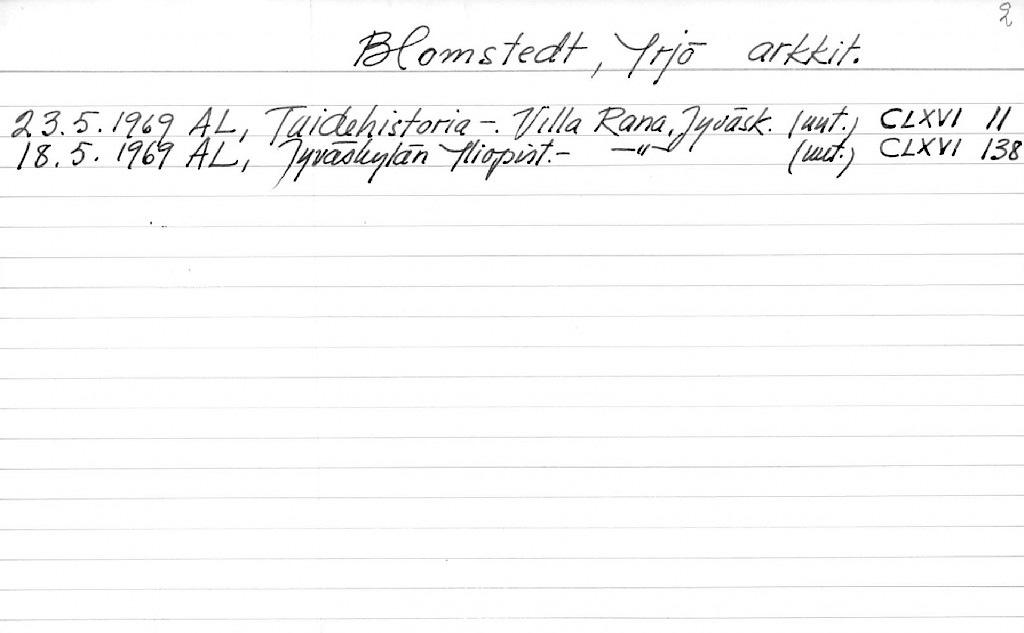 2
Blomstedt, Yrjö arkkit.
23.5.1969 AL, Taidehistoria -. Villa Rana, Jyväsk. (uut.) CLXVI 11
18.5.1969 AL, Jyväskylän Yliopist.- -"- (uut.) CLXVI 138